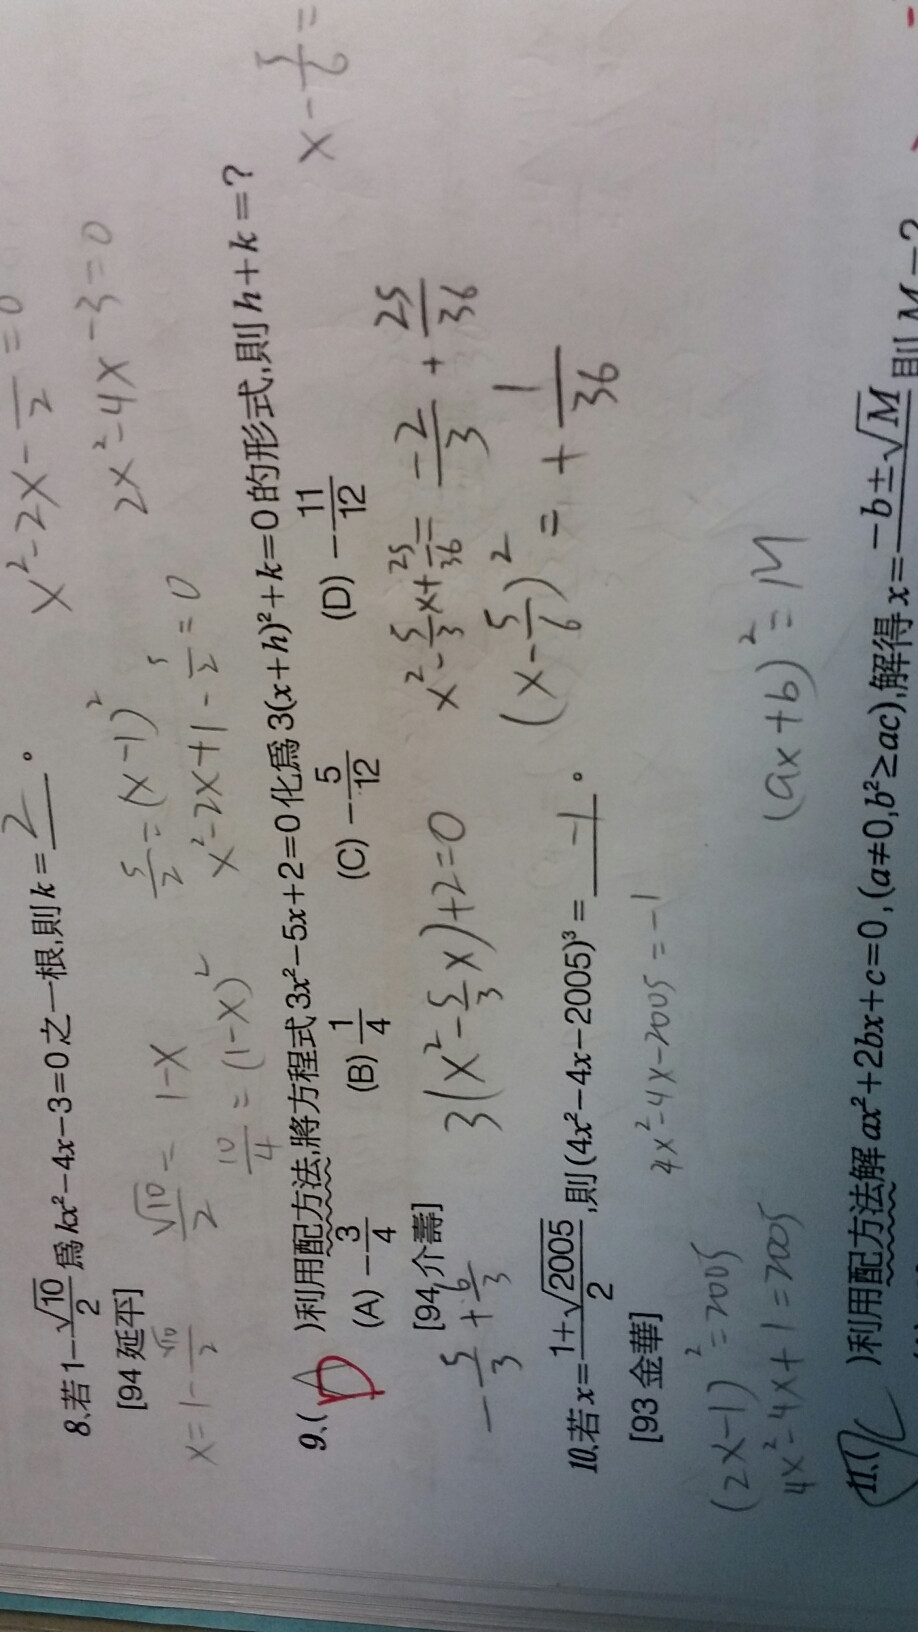 8.若1-√10/2 為 kx²-4x-3=0之一根,則k=2。
[94 延平]
x=1-√10/2
√10/2=1-x
10/4=(1-x)²
5/2=(x-1)²
x²-2x+1-5/2=0
x²-2x-3/2=0
2x²-4x-3=0
9.(D)利用配方法,將方程式3x²-5x+2=0化為3(x+h)²+k=0的形式,則h+k=?
(A) -3/4 (B) 1/4 (C) -5/12 (D) -11/12
[94介壽]
-5/3+6/3
3(x²-5/3x)+2=0
x²-5/3x+25/36=-2/3+25/36
(x-5/6)²=+1/36
x-5/6=
10.若x=(1+√2005)/2,則(4x²-4x-2005)³=-1。
[93 金華]
(2x-1)²=2005
4x²-4x+1=2005
4x²-4x-2005=-1
(ax+b)²=M
11.( )利用配方法解ax²+2bx+c=0,(a≠0,b²≥ac),解得x=(-b±√M)/ 則M=?